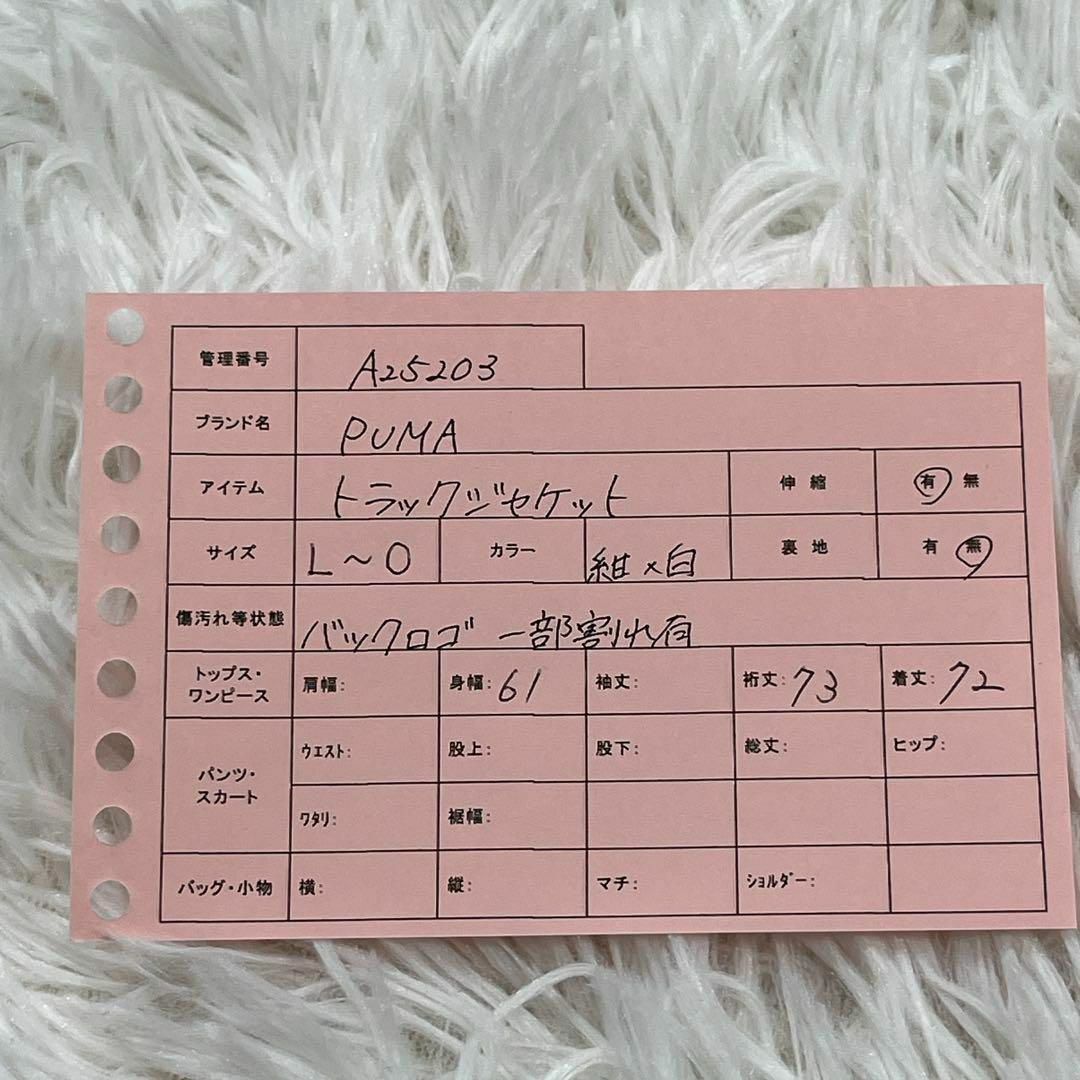 管理番号 A25203
ブランド名 PUMA
アイテム トラックジャケット 伸縮 有 無
サイズ L～O カラー 紺×白 裏地 有 無
傷汚れ等状態 バックロゴ 一部割れ有
トップス・ワンピース 肩幅: 身幅: 61 袖丈: 裄丈: 73 着丈: 72
パンツ・スカート ウエスト: 股上: 股下: 総丈: ヒップ:
ワタリ: 裾幅:
バッグ・小物 横: 縦: マチ: ショルダー: